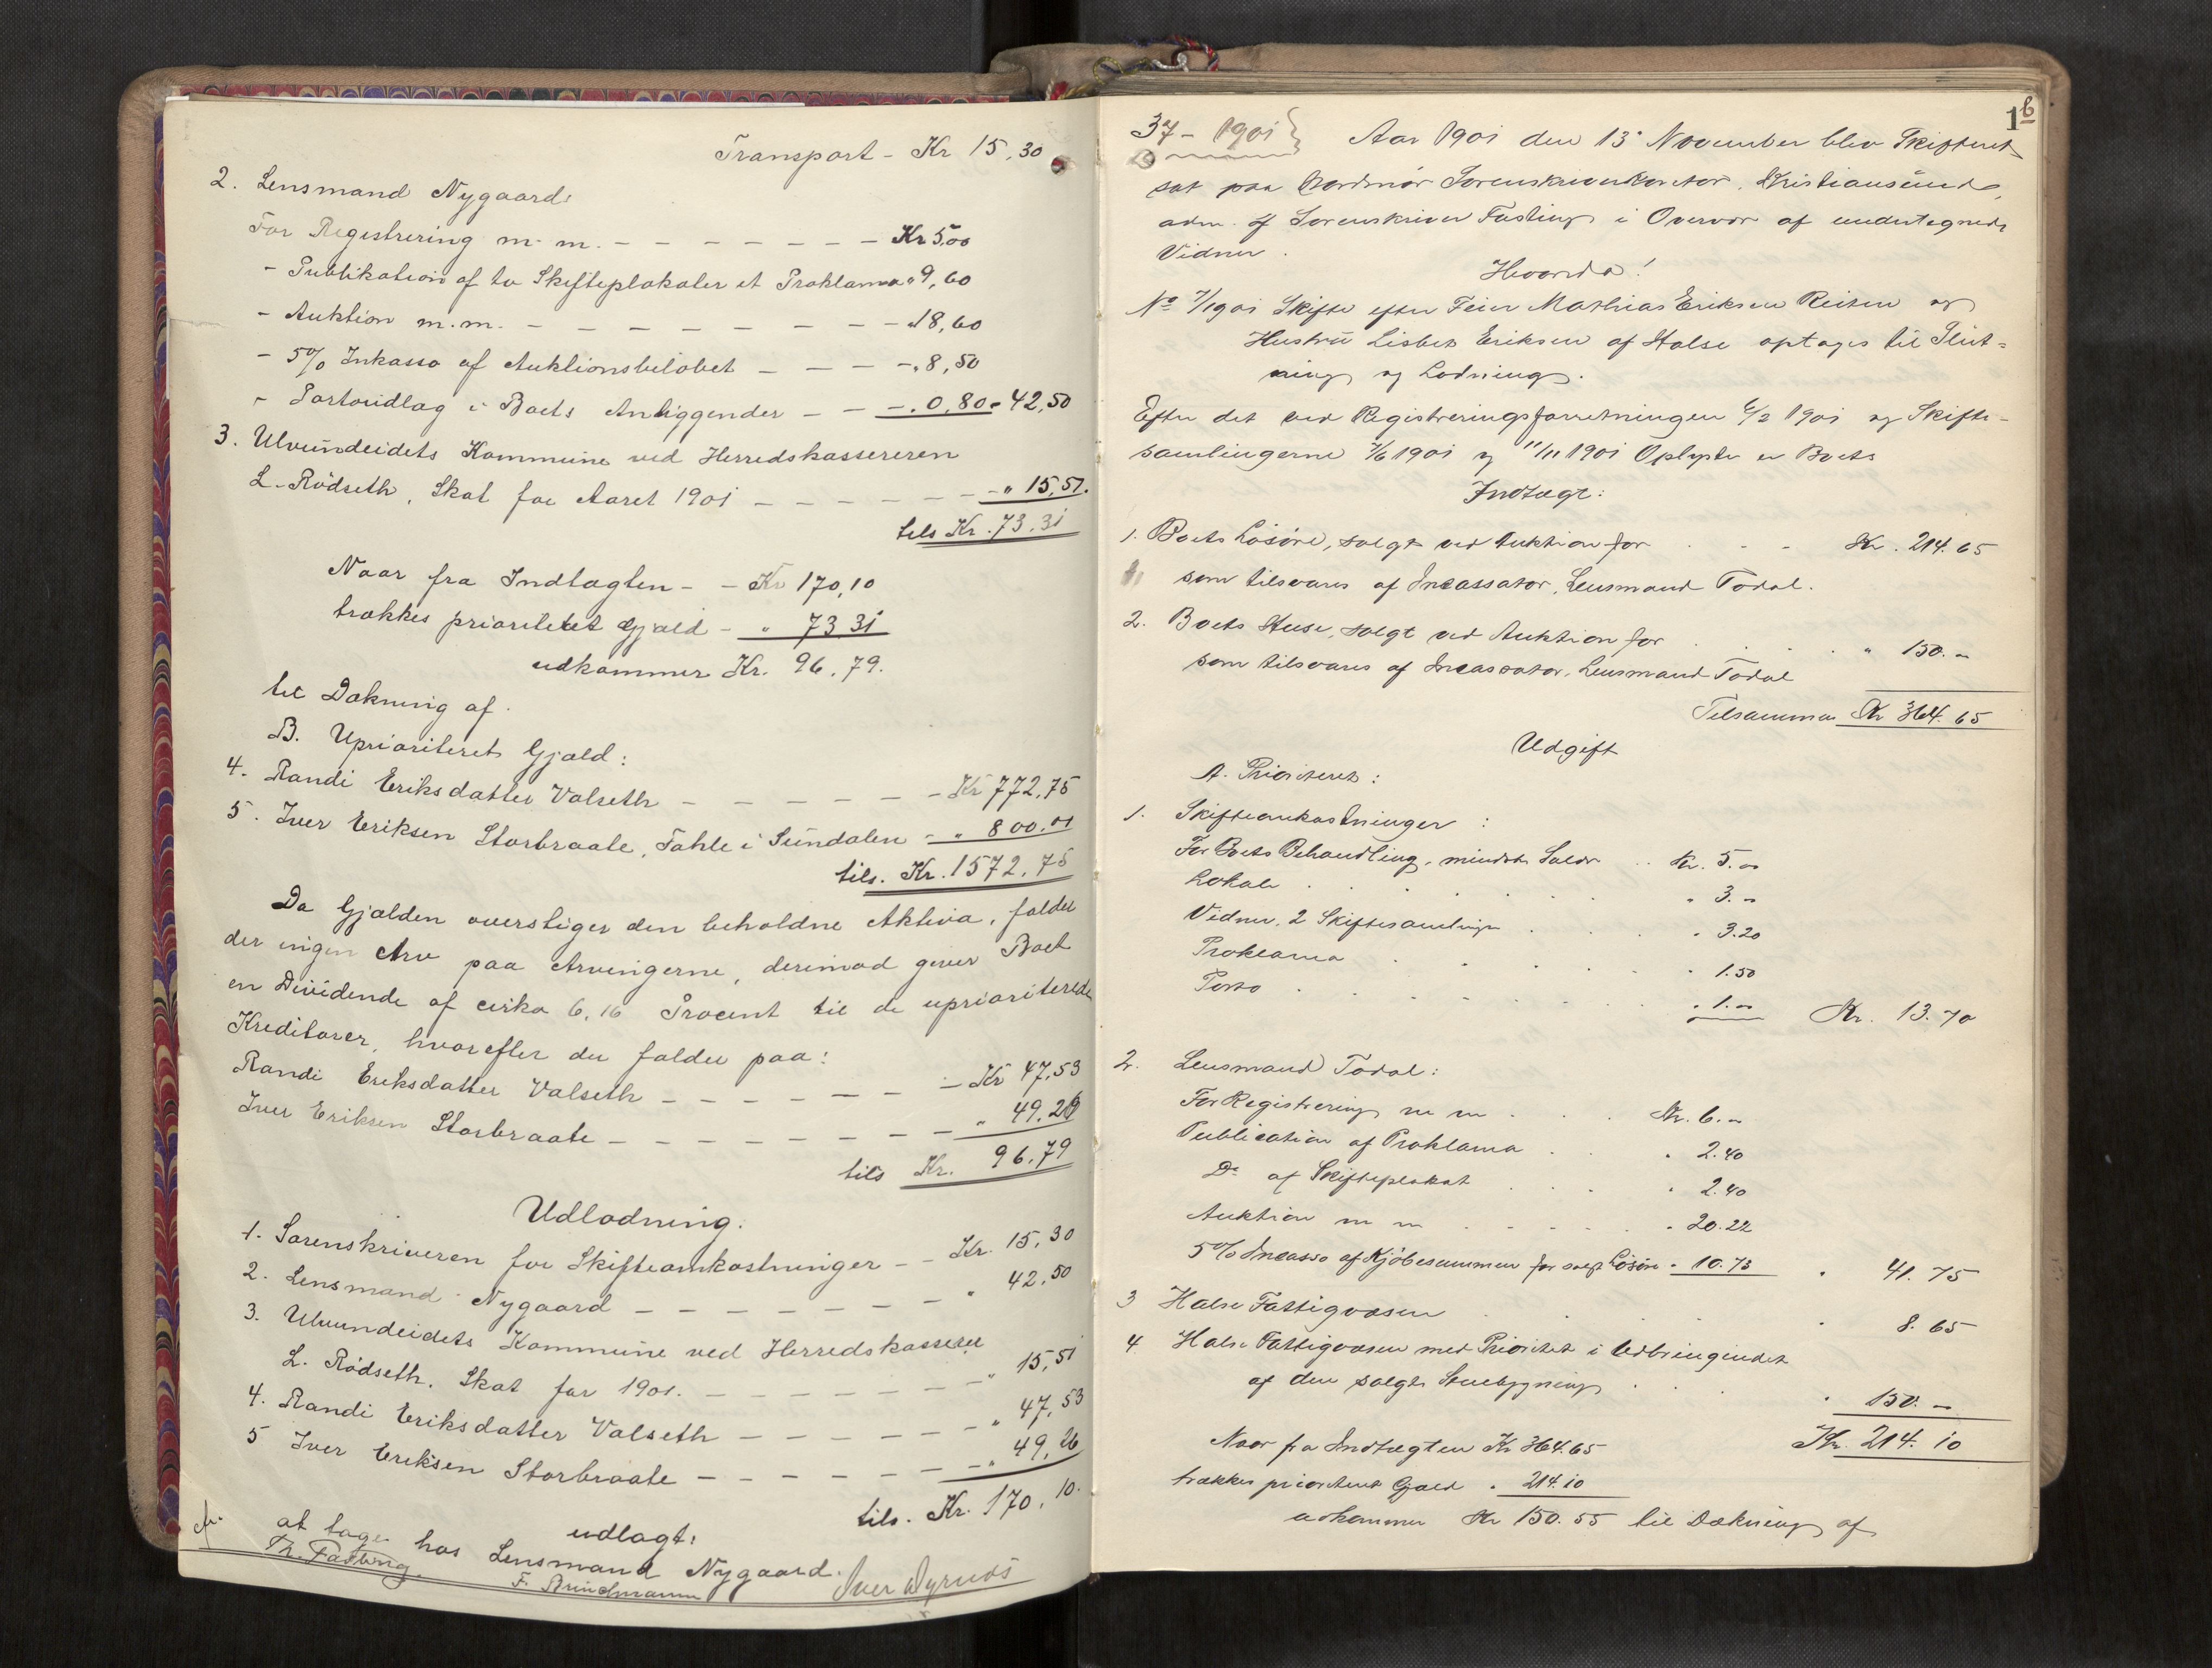 Transport - Kr 15,30
2. Lensmand Nygaard:
For Registrering m. m. - - - - - - - Kr 5,00
- Publikation af to Skifteplakater et Proklama " 9,60
- Auktion m. m. - - - - - - - - - " 18,60
- 5% Inkasso af Auktionsbeløbet - - - - " 8,50
- Portoudlag i Boets Anliggender - - - . 0,80 - 42,50
3. Ulvundeidets Kommune ved Herredskassereren
L. Rødseth, Skat for Aaret 1901 - - - - - - " 15,51.
tils Kr. 73.31
Naar fra Indtægten - - Kr 170,10
trækkes prioritetet Gjæld - " 73 31
udkommer Kr. 96.79.
til Dækning af.
B. Uprioriteret Gjæld:
4. Randi Eriksdatter Valseth - - - - - - Kr 772,75
5. Iver Eriksen Storbraate, Tahle i Sundalen - " 800.00
tils. Kr. 1572,75
Da Gjælden overstiger den beholdne Aktiva, falder
der ingen Arv paa Arvingerne, derimod giver Boet
en Dividende af cirka 6,16 Procent til de uprioriterede
Kreditorer, hvorefter der falder paa:
Randi Eriksdatter Valseth - - - - - - - Kr 47,53
Iver Eriksen Storbraate - - - - - - - - " 49.26
tils Kr. 96,79
Udlodning.
1. Sorenskriveren for Skifteomkostninger - - Kr. 15,30
2. Lensmand Nygaard - - - - - - - - " 42,50
3. Ulvundeidets Kommune ved Herredskasserer
L. Rødseth. Skat for 1901. - - - - - - - " 15,51
4. Randi Eriksdatter Valseth - - - - - - " 47,53
5 Iver Eriksen Storbraate - - - - - - - " 49,26
tils. Kr. 170,10.
udlagt:
at tage hos Lensmand Nygaard.
Th. Fasting. F. Brinchmann Iver Dyrnæs
1b
37 - 1901 } Aar 1901 den 13' November blev Skifteret
sat paa Nordmør Sorenskriverkontor, Kristianssund,
adm. af Sorenskriver Fasting i Overvær af undertegnede
Vidner.
Hvorda!
No 7/1901 Skifte efter Feier Mathias Eriksen Reiten og
Hustru Lisbet Eriksen af Halse optages til Slut=
ning og Lodning.
Efter det ved Registreringsforretningen 6/2 1901 og Skifte-
samlingerne 7/6 1901 og 11/11 1901 Oplyste er Boets
Indtægt:
1. Boets Løsøre, solgt ved Auktion for . - - Kr. 214.65
som tilsvares af Incassator, Lensmand Todal.
2. Boets Huse, solgt ved Auktion for . . . . " 150.-
som tilsvares af Incassator, Lensmand Todal
Tilsammen Kr 364.65
Udgift
A. Prioriteret:
1. Skifteomkostninger:
For Boets Behandling, mindste Salær . . Kr. 5.-
Lokale . . . . . . " 3.-
Vidner, 2 Skiftesamlinger . . . " 3.20
Proklama . . . . . " 1.50
Porto . . . . . . . " 1.- Kr. 13.70
2. Lensmand Todal:
For Registrering m m . . . Kr. 6.-
Publication af Proklama . . " 2.40
Do af Skifteplakat . . . " 2.40
Auktion m m . . . . . " 20.22
5% Incasso af Kjøbesummen for solgt Løsøre " 10.73 " 41.75
3 Halse Fattigvæsen . . . . " 8.65
4 Halse Fattigvæsen med Prioritet i Udbringendet
af den solgte Stuebygning . . . " 150.-
Kr. 214.10
Naar fra Indtægten Kr 364.65
trækkes prioriteret Gjæld " 214.10
udkommer Kr 150.55 til Dækning af